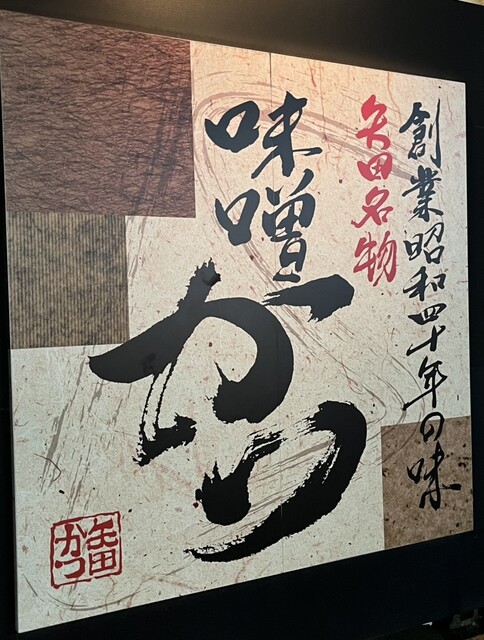 創業昭和四十年の味
矢田名物
味噌
かつ
矢田
かつ